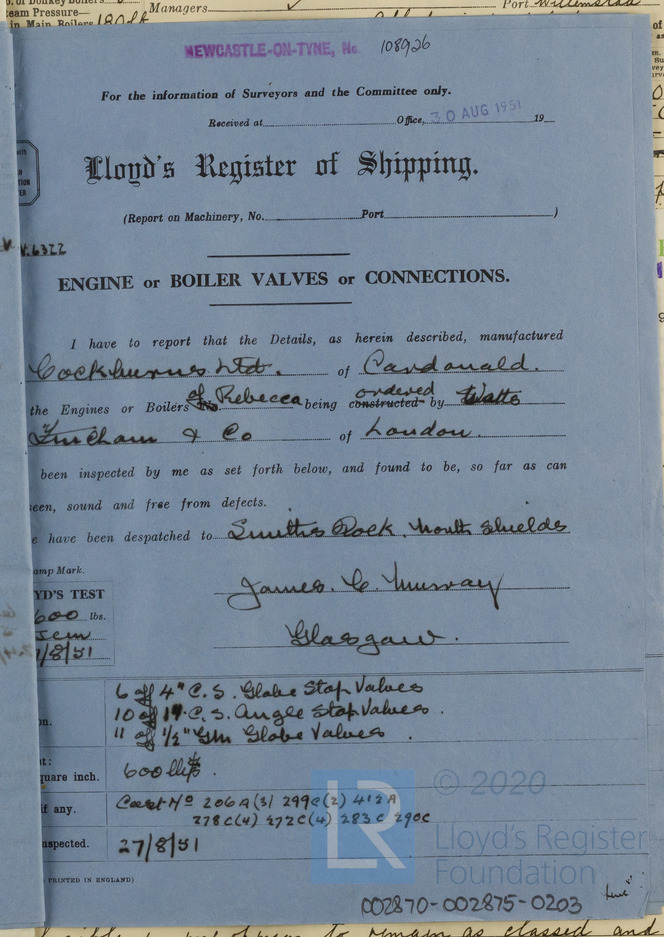 Managers
Port
team Pressure—
in Main Boilers 180 lb
NEWCASTLE-ON-TYNE, No. 108926
For the information of Surveyors and the Committee only.
Received at Office, 30 AUG 1951 19
Lloyd's Register of Shipping.
(Report on Machinery, No. Port )
V.6322
ENGINE or BOILER VALVES or CONNECTIONS.
I have to report that the Details, as herein described, manufactured
Cockburns Ltd. of Cardonald.
the Engines or Boilers No. of Rebecca being constructed ordered by Watts
Fincham & Co of London.
been inspected by me as set forth below, and found to be, so far as can
een, sound and free from defects.
e have been despatched to Smiths Dock. North Shields
amp Mark.
James. C. Murray
YD'S TEST
600 lbs.
JCM
Glasgow.
/8/51
6 off 4" C.S. Globe Stop Valves
on. 10 off C.S. Angle Stop Valves.
11 off 1/2" GM Globe Valves.
t:
quare inch. 600
if any. Cast Nº 206A(3) 299C(2) 412A
278C(4) 272C(4) 283C 290C
nspected. 27/8/51
PRINTED IN ENGLAND).
LR © 2020
Lloyd's Register
Foundation
002870-002875-0203
to remain as classed and